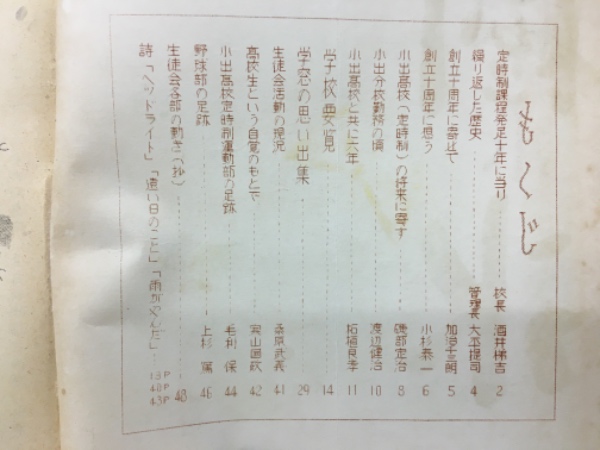 もくじ
定時制課程発足十年に当り 校長 酒井梯吉 2
繰り返した歴史 管理長 大平提司 4
創立十周年に寄せて 加治千三朗 5
創立十周年に想う 小杉泰一 6
小出高校(定時制)の将来に寄す 磯部定治 8
小出分校勤務の頃 渡辺健治 10
小出高校と共に六年 柘植良孝 11
学校要覧 14
学窓の思い出集 29
生徒会活動の現況 桑原武義 41
高校生という自覚のもとで 室山国政 42
小出高校定時制運動部の足跡 毛利保 44
野球部の足跡 上杉篤 46
生徒会各部の動き(抄) 48
詩「ヘッドライト」「遠い日のこと」「雨がやんだ」 13P 40P 43P